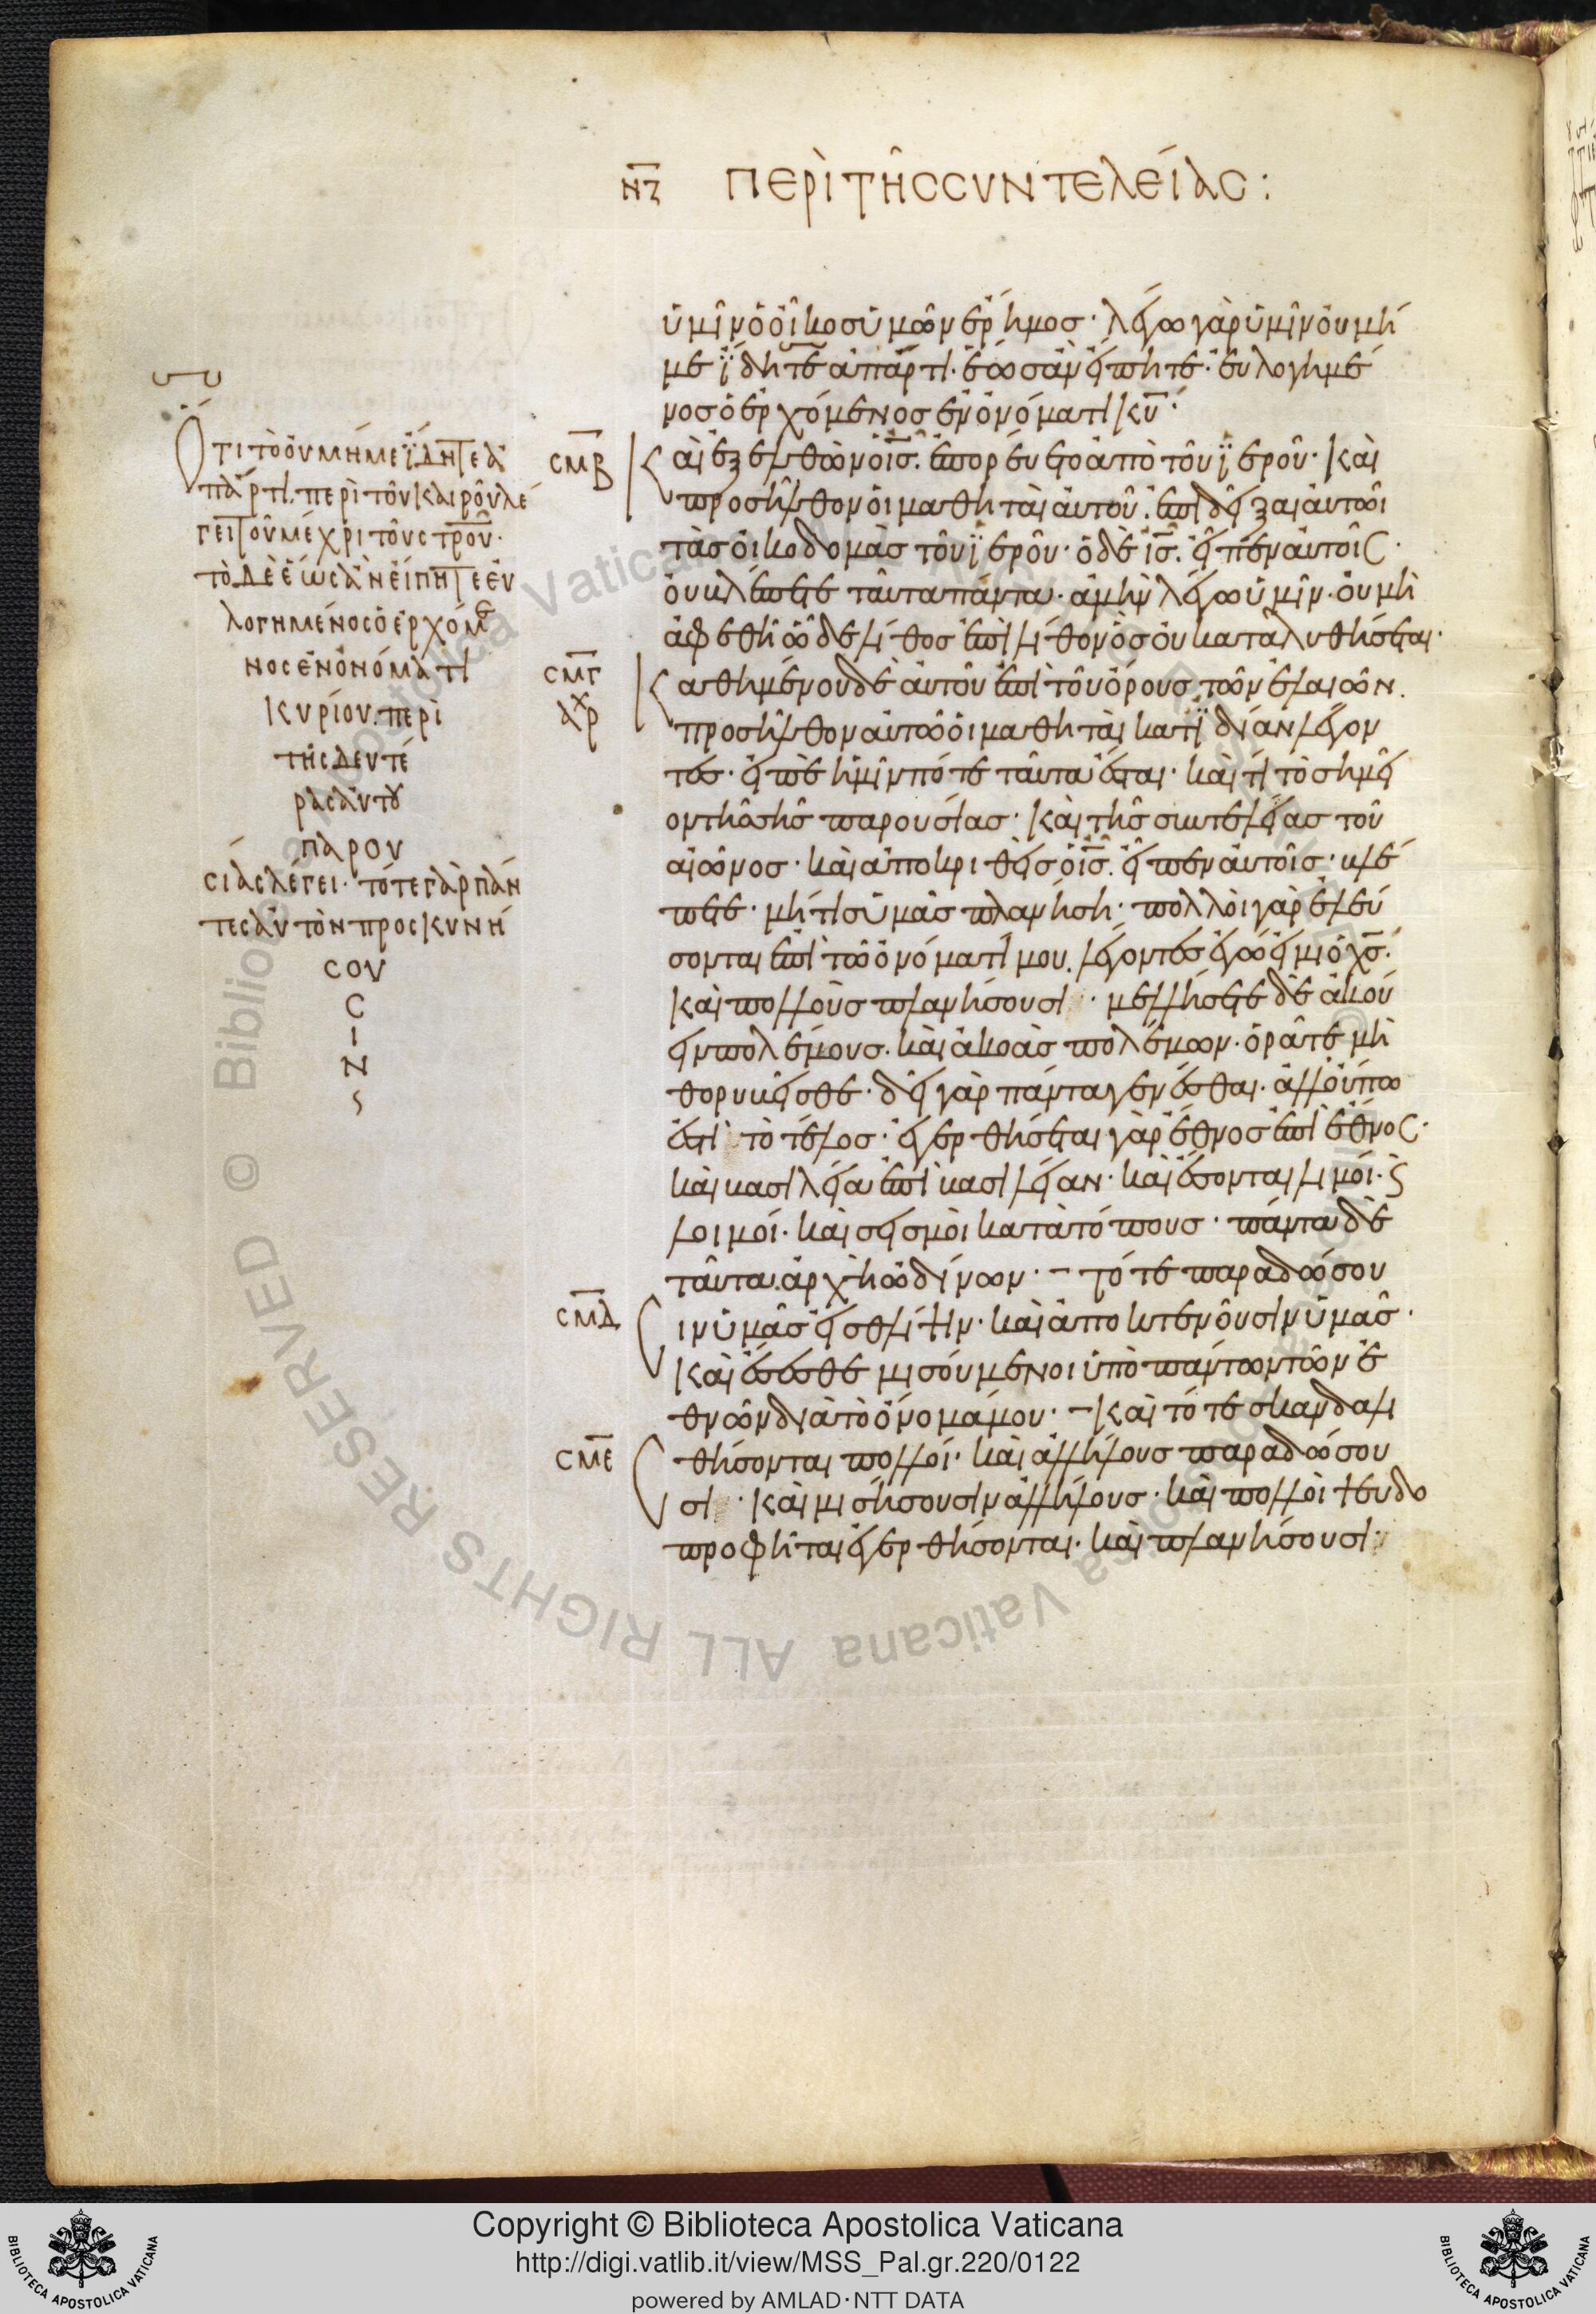 ΝΖ ΠΕΡῚ ΤΗ͂Σ ΣΥΝΤΕΛΕΊΑΣ:
ὑμῖν ὁ οἶκος ὑμῶν ἔρημος· λέγω γὰρ ὑμῖν οὐ μή
με ἴδητε ἀπάρτι. ἕως ἂν εἴπητε· εὐλογημέ
νος ὁ ἐρχόμενος ἐν ὀνόματι κυ̅·
ΣΜΒ Καὶ ἐξελθὼν ὁ ις̅. ἐπορεύετο ἀπὸ τοῦ ἱεροῦ· καὶ
προσῆλθον οἱ μαθηταὶ αὐτοῦ. ἐπιδεῖξαι αὐτῶι
τὰς οἰκοδομὰς τοῦ ἱεροῦ· ὁ δὲ ις̅. εἶπεν αὐτοῖς·
οὐ βλέπετε ταῦτα πάντα. ἀμὴν λέγω ὑμῖν. οὐ μὴ
ἀφεθῆ ὧδε λίθος ἐπὶ λίθον ὃς οὐ καταλυθήσεται·
ΣΜΓ Καθημένου δὲ αὐτοῦ ἐπὶ τοῦ ὄρους τῶν ἐλαιῶν.
προσῆλθον αὐτῶ οἱ μαθηταὶ κατιδίαν λέγον
τες· εἰπὲ ἡμῖν πότε ταῦτα ἔσται· καὶ τί τὸ σημεῖ
ον τῆς σῆς παρουσίας· καὶ τῆς συντελείας τοῦ
αἰῶνος· καὶ ἀποκριθεὶς ὁ ις̅. εἶπεν αὐτοῖς· βλέ
πετε· μή τις ὑμᾶς πλανήση· πολλοὶ γὰρ ἐλεύ
σονται ἐπὶ τῶ ὀνόματί μου. λέγοντες ἐγώ εἰμι ὁ χς̅·
καὶ πολλοὺς πλανήσουσι· μελλήσετε δὲ ἀκού
ειν πολέμους. καὶ ἀκοὰς πολέμων· ὁρᾶτε μὴ
θορυβεῖσθε· δεῖ γὰρ πάντα γενέσθαι. ἀλλ' οὔπω
ἐστὶ τὸ τέλος· ἐγερθήσεται γὰρ ἔθνος ἐπὶ ἔθνος·
καὶ βασιλεία ἐπὶ βασιλείαν· καὶ ἔσονται λιμοί· ϗ
λοιμοί· καὶ σεισμοὶ κατὰ τόπους· πάντα δὲ
ταῦτα ἀρχὴ ὠδίνων· – τότε παραδώσου
ΣΜΔ ιν ὑμᾶς εἰς θλίψιν· καὶ ἀποκτενοῦσιν ὑμᾶς·
καὶ ἔσεσθε μισούμενοι ὑπὸ πάντων τῶν ἐ
θνῶν διὰ τὸ ὄνομά μου· – Καὶ τότε σκανδαλι
ΣΜΕ θήσονται πολλοί· καὶ ἀλλήλους παραδώσου
σι· καὶ μισήσουσιν ἀλλήλους· καὶ πολλοὶ ψευδο
προφῆται ἐγερθήσονται. καὶ πλανήσουσι·
Ὅτι τὸ οὐ μή με ἴδητε ἀ
πάρτι. περὶ τοῦ καιροῦ λέ
γει τοῦ μέχρι τοῦ στ̅ρ̅ο̅υ̅·
τὸ δὲ ἕως ἂν εἴπητε εὐ
λογημένος ὁ ἐρχόμε
νος ἐν ὀνόματι
κυρίου. περὶ
τῆς δευτέ
ρας αὐτοῦ
παρου
σίας λέγει· τότε γὰρ πάν
τες αὐτὸν προσκυνή
σου
σ
ι
ν
Copyright © Biblioteca Apostolica Vaticana
http://digi.vatlib.it/view/MSS_Pal.gr.220/0122
powered by AMLAD·NTT DATA
BIBLIOTECA APOSTOLICA VATICANA
BIBLIOTECA APOSTOLICA VATICANA
© Biblioteca Apostolica Vaticana ALL RIGHTS RESERVED